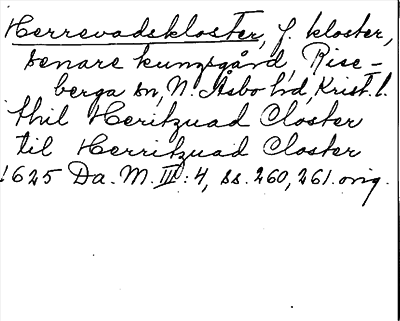 Herrevadskloster, f. kloster,
senare kungsgård, Rise-
berga sn, N. Åsbo hd, Krist. l.
thil Heritzuad Closter
til Herritzuad Closter
1625 Da. M. III: 4, ss. 260, 261. orig.